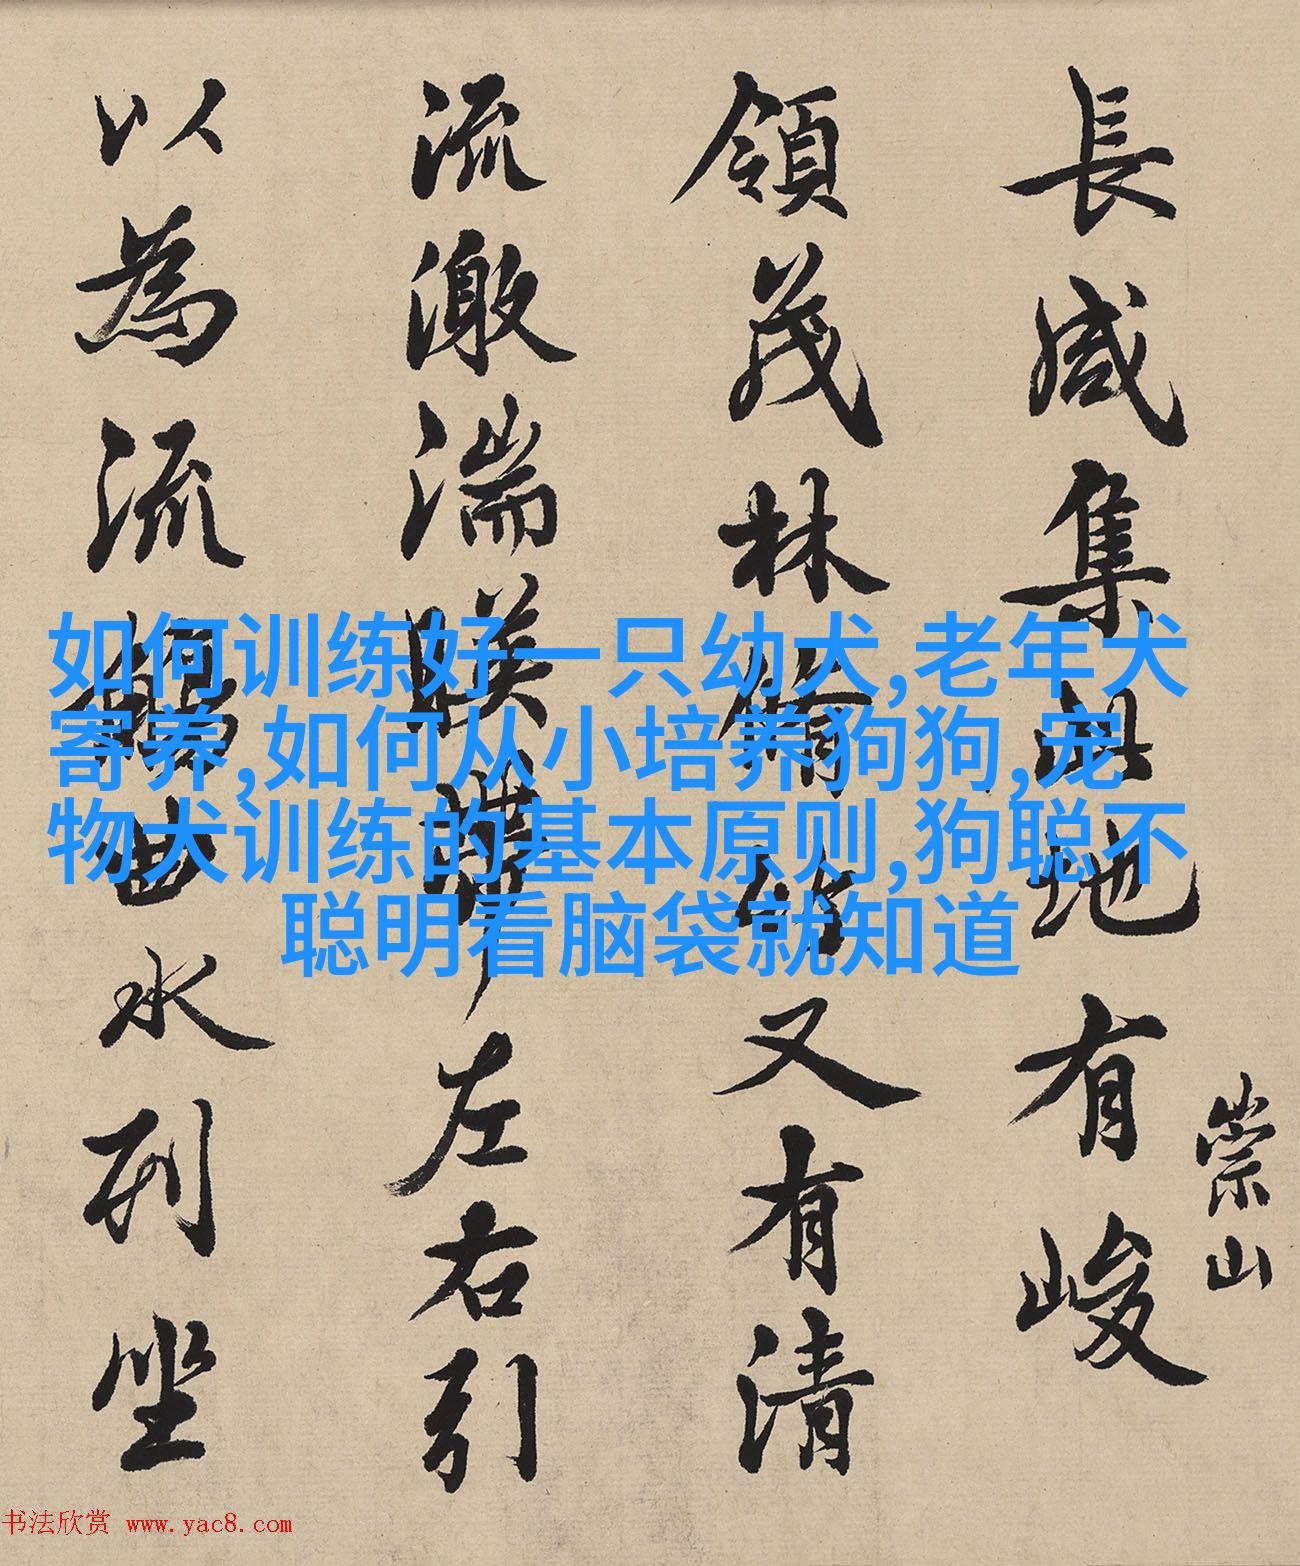 長咸集此地有峻
崇山
領茂林脩竹又有清
流激湍暎帶左右引
以為流觴曲水列坐
如何训练好一只幼犬,老年犬
寄养,如何从小培养狗狗,宠
物犬训练的基本原则,狗聪不
聪明看脑袋就知道
书法欣赏 www.yac8.com